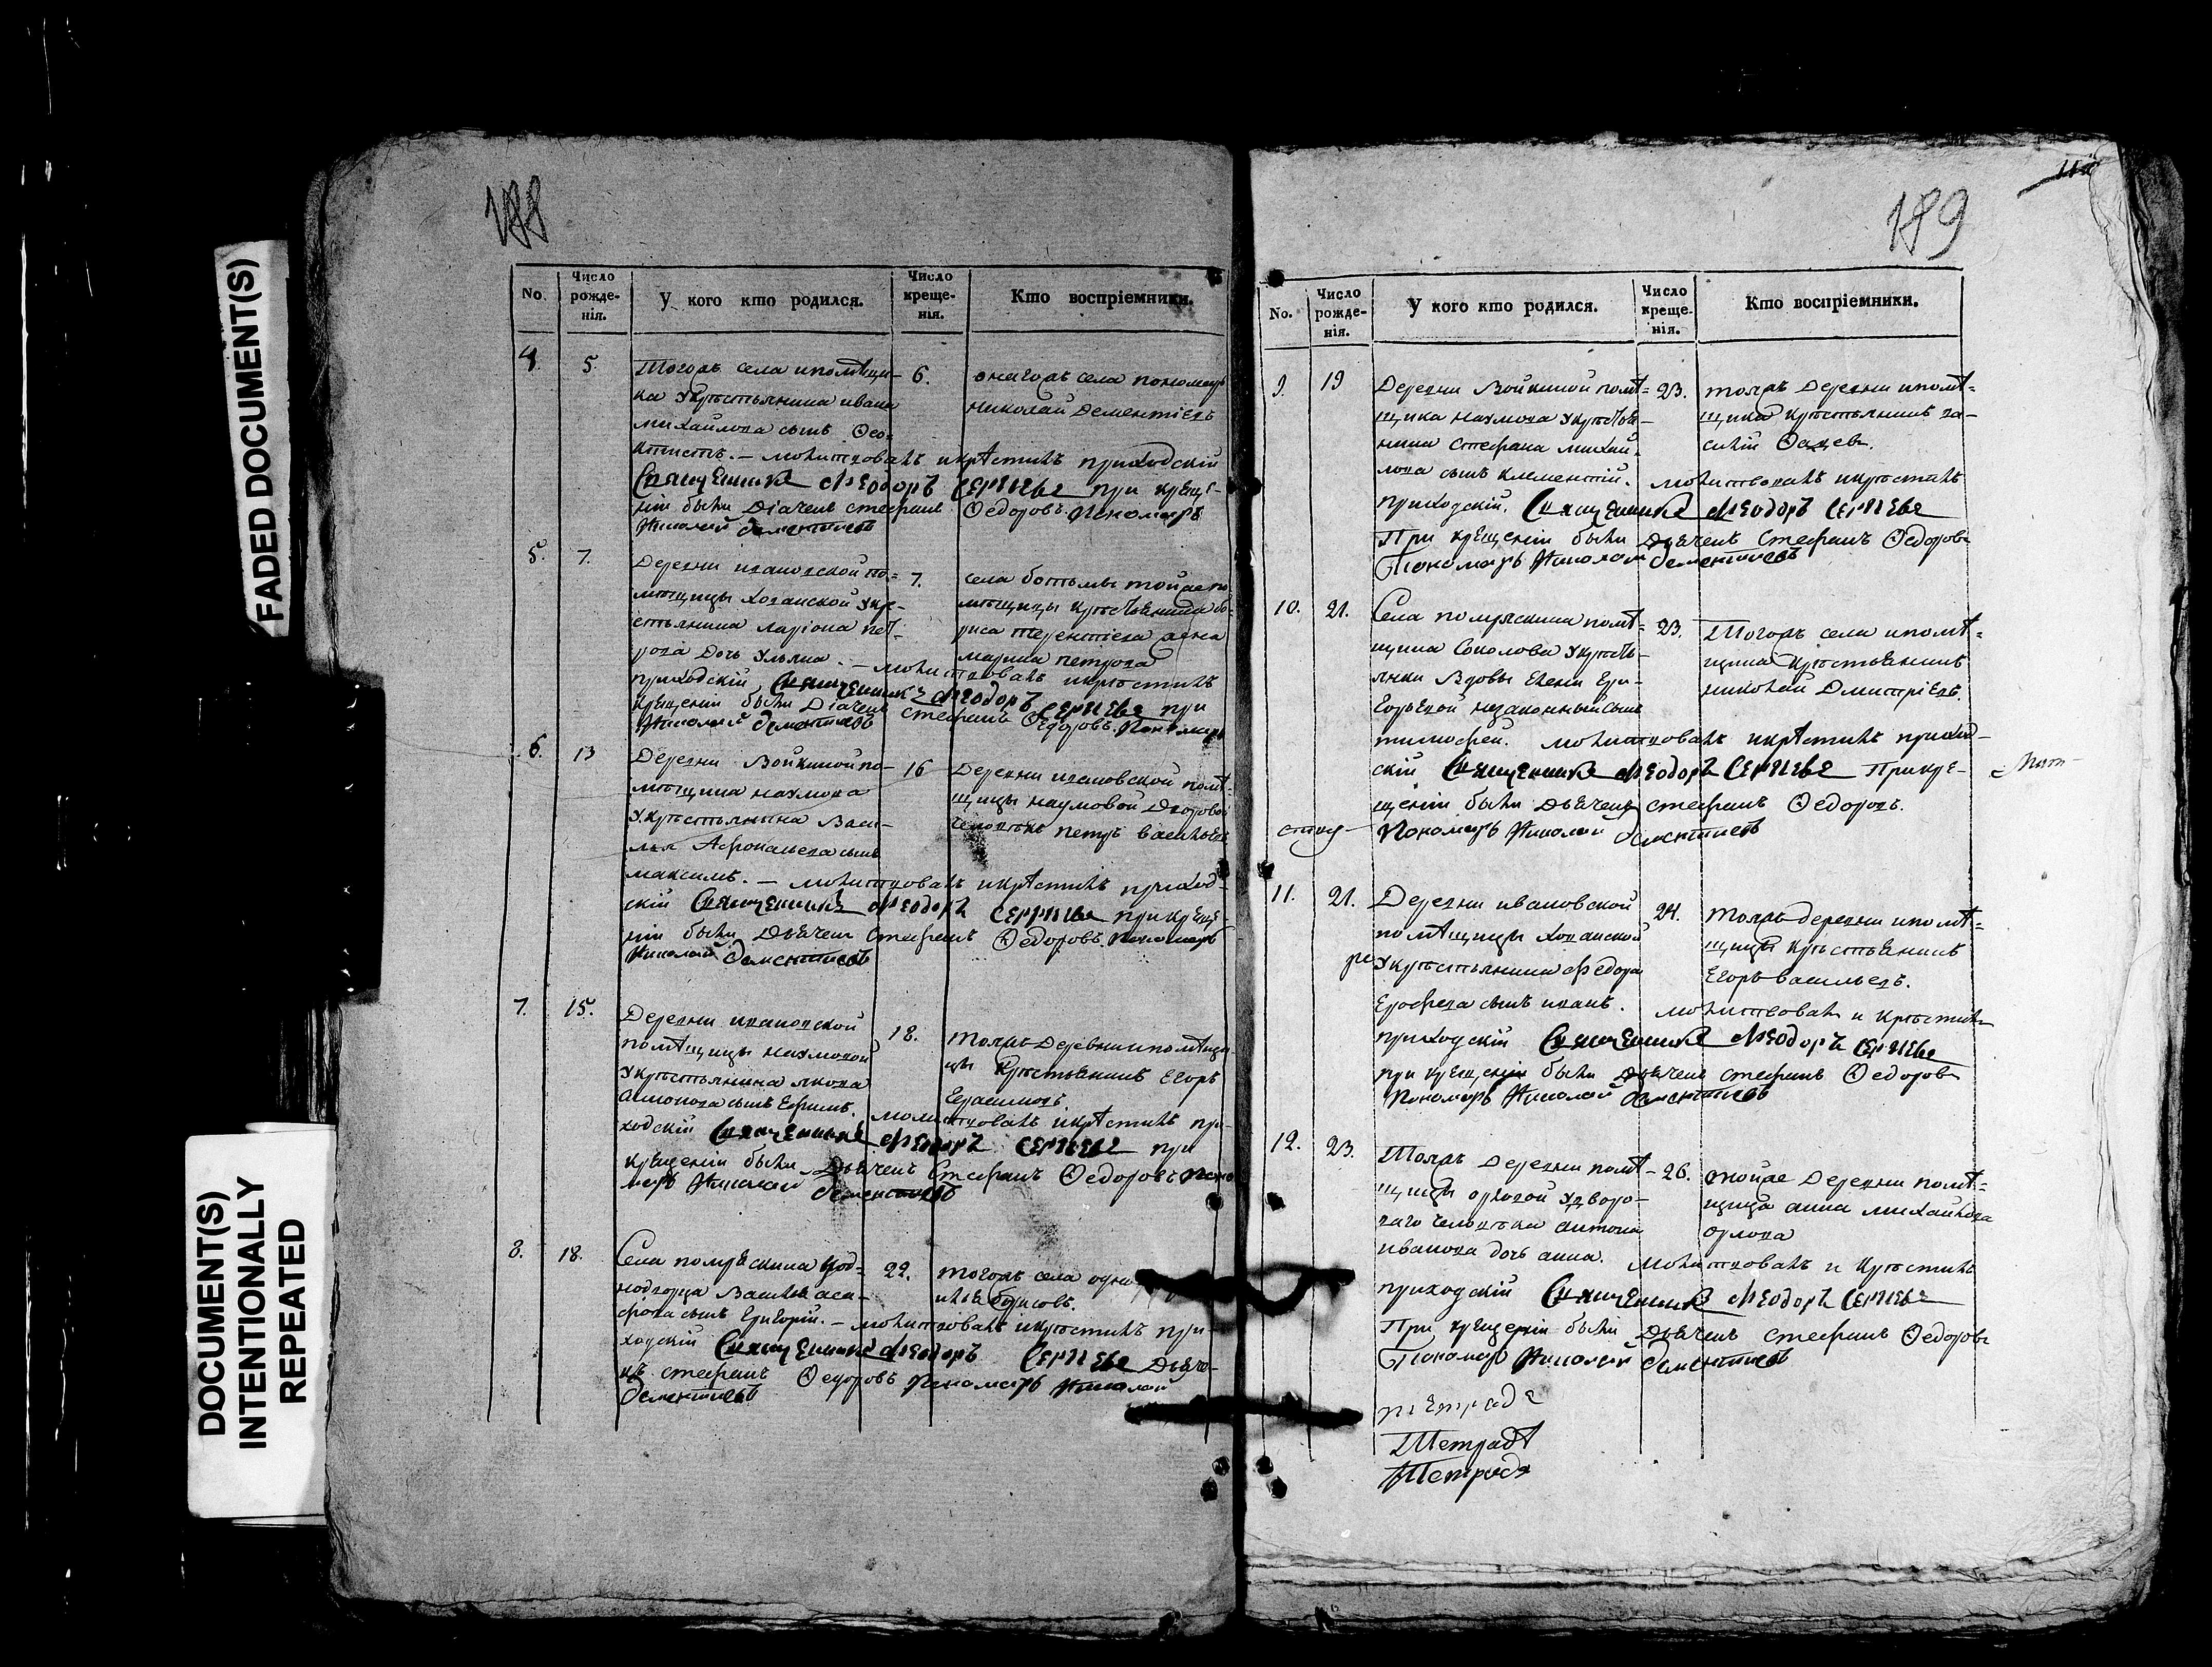 FADED DOCUMENT(S)
DOCUMENT(S)
INTENTIONALLY
REPEATED
188
No.
Число рожде-нія.
У кого кто родился.
Число креще-нія.
Кто воспріемники.
4
5
Тогожъ села и помѣщи-
ка Укрестьянина ивана
михайлова сынъ Ѳео-
ктистъ. — молитвовалъ икрѣстилъ приходскій
Священникъ Ѳеодоръ Сергѣевъ при креще-
ніи были діаченъ стефанъ Ѳедоровъ. Пономарь
Николай дементиевъ
6.
онагожъ села пономарь
николай дементіевъ
5.
7.
Деревни ивановской по-
мѣщицы Хованской Укре-
стьянина ларіона пет-
рова дочь Ульяна. — молитвовалъ икрестилъ
приходскій Священникъ Ѳеодоръ Сергѣевъ при
крещеніи были Діаченъ стефанъ Ѳедоровъ. Пономарь
Николай дементиевъ
7.
села ботьмы тойже по
мѣщицы крестьянина бо-
риса терентіева жена
марина петрова
6.
13
Деревни Войкиной по-
мѣщика наумова
Укрестьянина Васи-
лья Афонасьева сынъ
максимъ. — молитвовалъ икрѣстилъ приход-
скій Священникъ Ѳеодоръ Сергѣевъ при креще-
ніи были Дьяченъ Стефанъ Ѳедоровъ. Пономарь
Николай дементиевъ
16
Деревни ивановской помѣ-
щицы наумовой дворовой
человѣкъ петръ васильевъ
7.
15.
Деревни ивановской
помѣщицы наумовой
Укрестьянина якова
антонова сынъ Ефимъ. молитвовалъ икрѣстилъ при-
ходскій Священникъ Ѳеодоръ Сергѣевъ при
крещеніи были Дьяченъ Стефанъ Ѳедоровъ Поно
марь Николай дементиевъ
18.
тояжъ Деревни и помѣщи-
цы крестьянинъ Егоръ
Герасимовъ
8.
18.
Села помряскина Уод-
нодворца Василья
сынъ Григорій. — молитвовалъ икрестилъ при-
ходскій Священникъ Ѳеодоръ Сергѣевъ Дьяче-
нъ стефанъ Ѳедоровъ Пономарь Николай
дементиевъ
22.
тогожъ села
илья борисовъ.
189
No.
Число рожде-нія.
У кого кто родился.
Число креще-нія.
Кто воспріемники.
9.
19
Деревни Войкиной помѣ-
щика наумова Укрестья-
нина стефана михай-
лова сынъ климентій. молитвовалъ икрестилъ
приходскій. Священникъ Ѳеодоръ Сергѣевъ
При крещеніи были Дьяченъ Стефанъ Ѳедоровъ
Пономарь Николай дементиевъ
23.
тояжъ деревни и помѣ-
щика крестьянинъ ва-
силій
10.
21.
Села помряскина помѣ-
щика Соколова Укресть-
янки Вдовы Елены Гри-
горьевой незаконный сынъ
тимофей. молитвовалъ икрѣстилъ приход-
скій Священникъ Ѳеодоръ Сергѣевъ При кре-
щеніи были дьяченъ стефанъ Ѳедоровъ.
Пономарь Николай дементиевъ
23.
Тогожъ села и помѣ-
щика крестьянинъ
николай Дмитріевъ.
11.
21.
Деревни ивановской
помѣщицы Хованской
Укрестьянина Федора
Ерофеева сынъ иванъ. молитвовалъ и крестилъ
приходскій Священникъ Ѳеодоръ Сергѣевъ
при крещеніи были дьяченъ стефанъ Ѳедоровъ
Пономарь Николай дементиевъ
24.
тояжъ деревни и помѣ-
щицы крестьянинъ
Егоръ васильевъ.
12.
23.
Тояжъ Деревни помѣ-
щицы орловой Удворо-
ваго человѣка антона
иванова дочь анна. молитвовалъ и крестилъ
приходскій Священникъ Ѳеодоръ Сергѣевъ
При крещеніи были дьяченъ стефанъ Ѳедоровъ
Пономарь Николай дементиевъ
26.
тойже Деревни помѣ-
щица анна михайлова
орлова
Тетрадь
Тетрадь